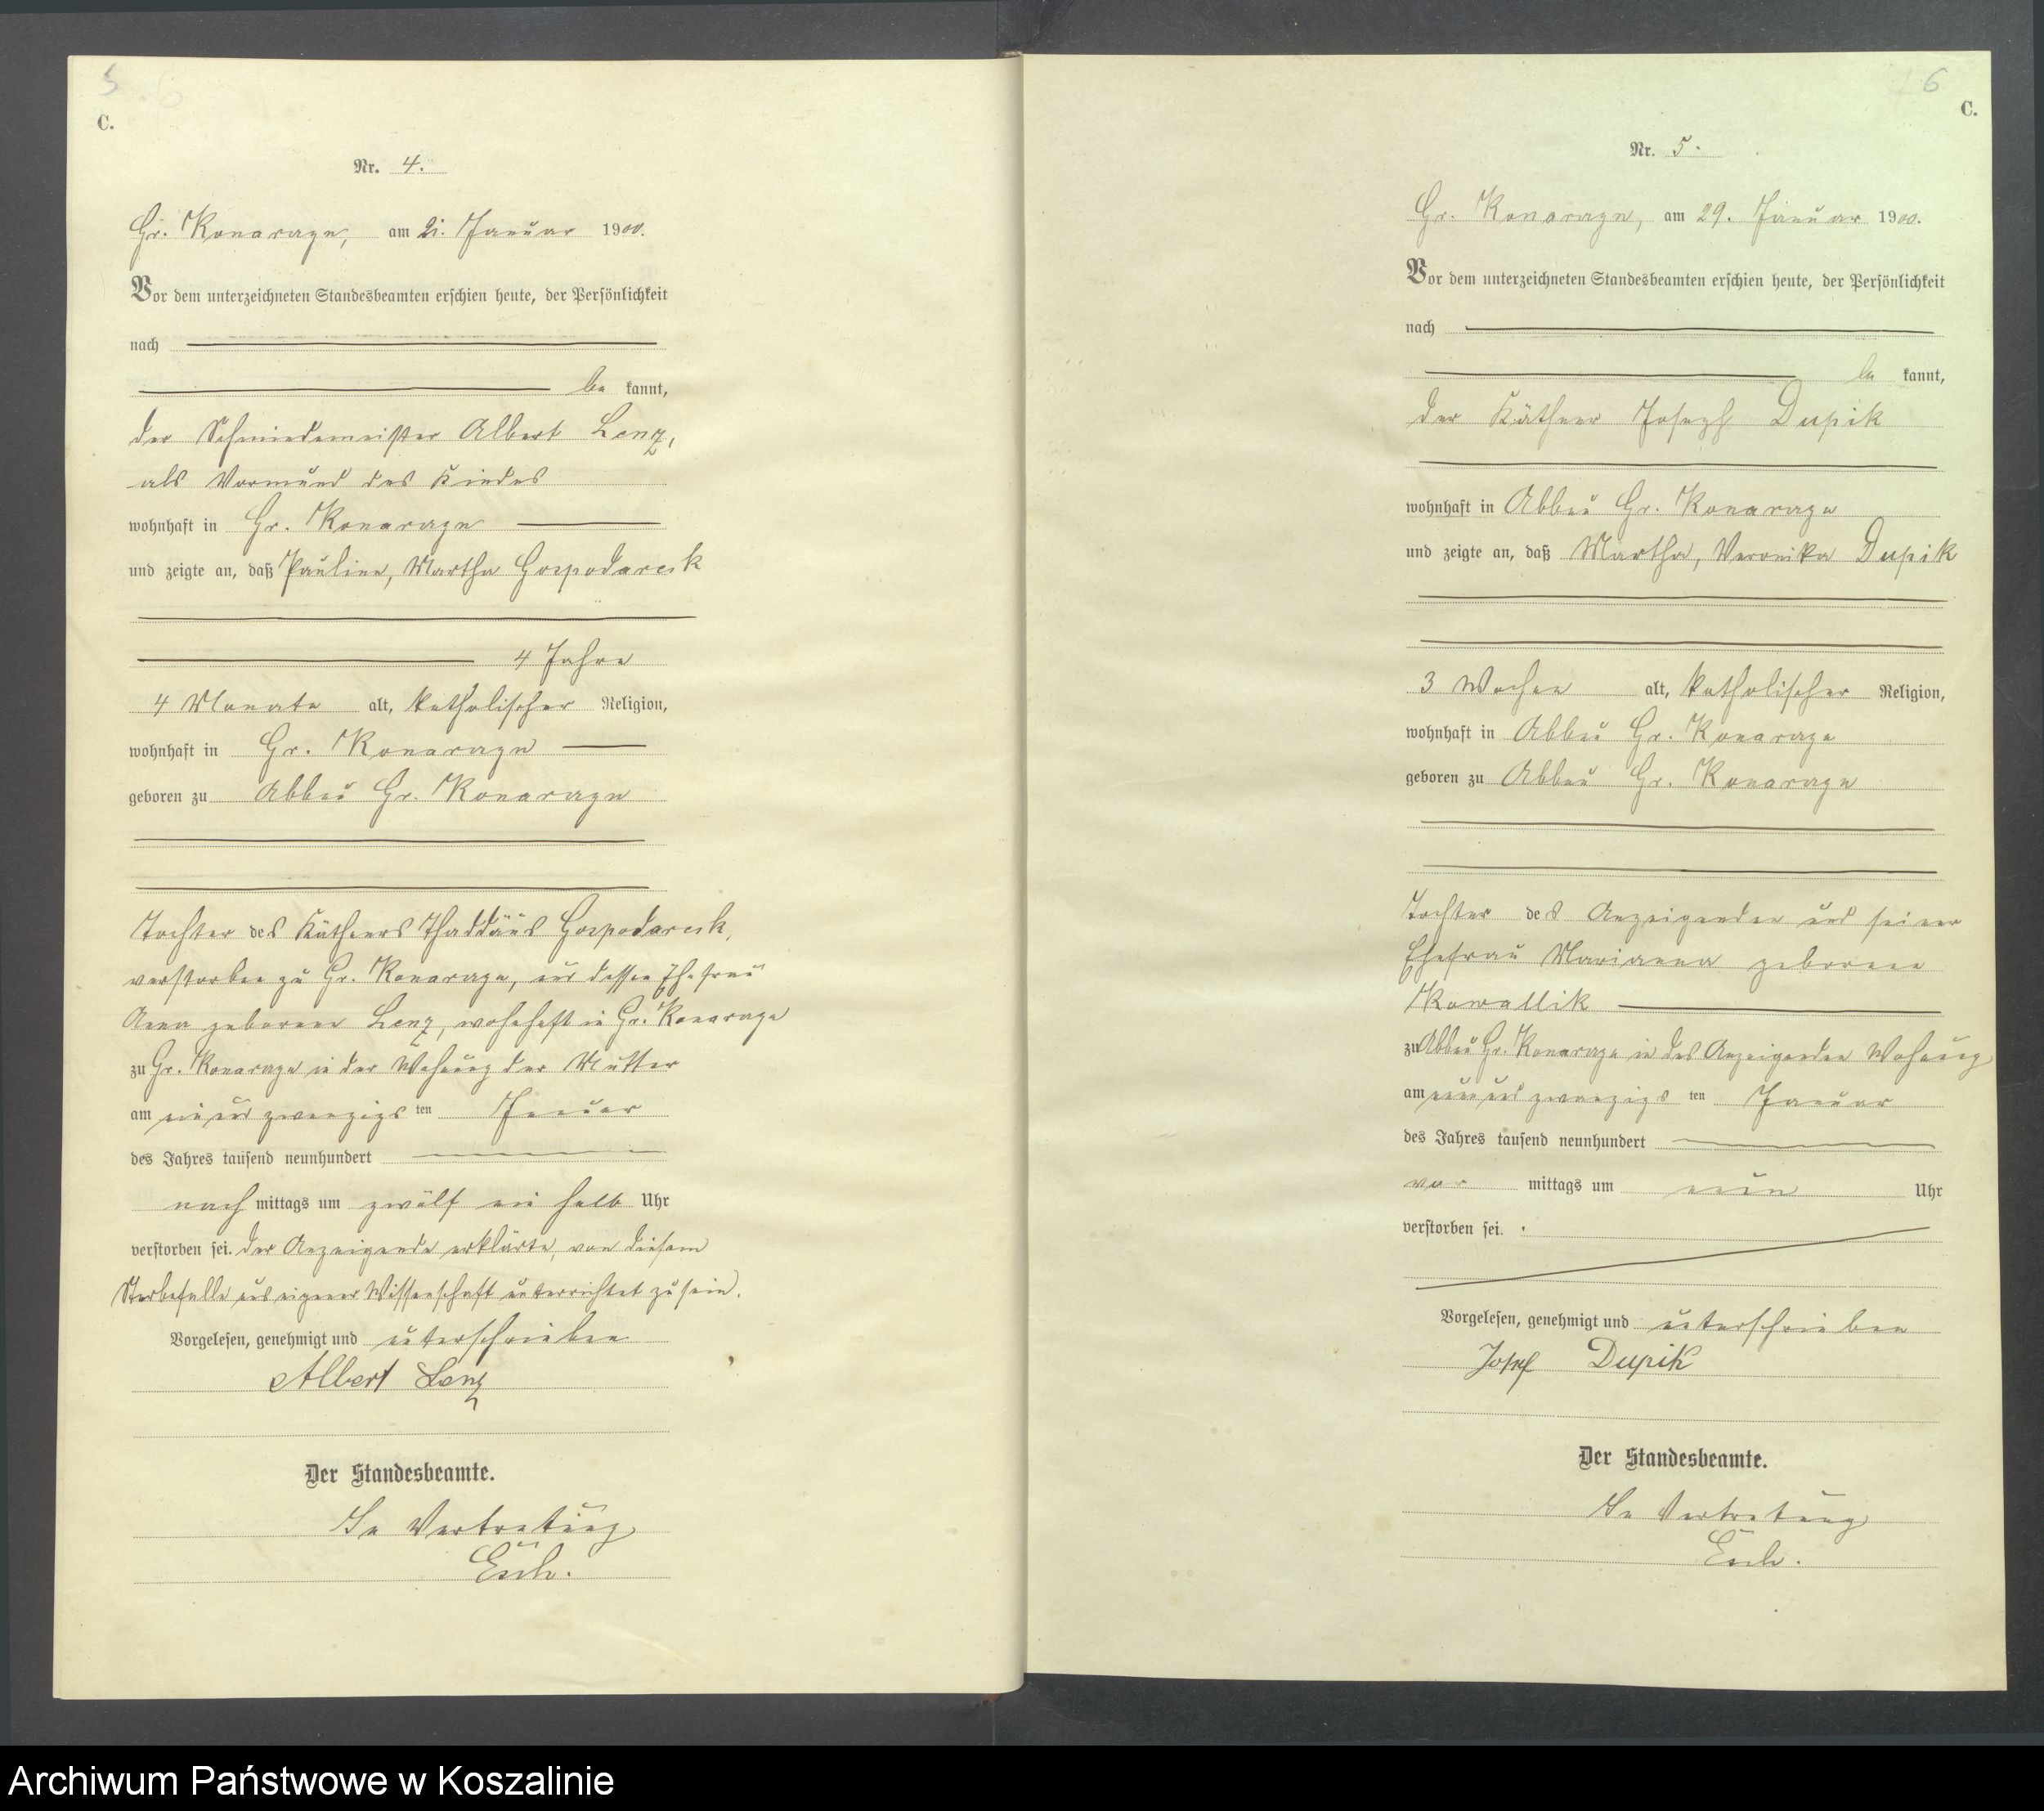 5
C.
Nr. 4.
Gr. Konarczyn, am 21. Januar 1900.
Vor dem unterzeichneten Standesbeamten erschien heute, der Persönlichkeit
nach
be kannt,
der Schmiedemeister Albert Lenz,
als Vormund des Kindes
wohnhaft in Gr. Konarczyn
und zeigte an, daß Pauline, Martha Gospodarek
4 Jahre
4 Monate alt, katholischer Religion,
wohnhaft in Gr. Konarczyn
geboren zu Abbau Gr. Konarczyn
Tochter des Käthners Thaddäus Gospodarek,
verstorben zu Gr. Konarczyn, und dessen Ehefrau
Anna geborene Lenz, wohnhaft in Gr. Konarczyn
zu Gr. Konarczyn in der Wohnung der Mutter
am ein und zwanzigs ten Januar
des Jahres tausend neunhundert
nach mittags um zwölf ein halb Uhr
verstorben sei. Der Anzeigende erklärte, von diesem
Sterbefalle aus eigener Wissenschaft unterrichtet zu sein.
Vorgelesen, genehmigt und unterschrieben
Albert Lenz
Der Standesbeamte.
In Vertretung
6
C.
Nr. 5.
Gr. Konarczyn, am 29. Januar 1900.
Vor dem unterzeichneten Standesbeamten erschien heute, der Persönlichkeit
nach
be kannt,
der Käthner Joseph Dupik
wohnhaft in Abbau Gr. Konarczyn
und zeigte an, daß Martha, Veronika Dupik
3 Wochen alt, katholischer Religion,
wohnhaft in Abbau Gr. Konarczyn
geboren zu Abbau Gr. Konarczyn
Tochter des Anzeigenden und seiner
Ehefrau Marianna geborene
Kowallik
zu Abbau Gr. Konarczyn in des Anzeigenden Wohnung
am neun und zwanzigs ten Januar
des Jahres tausend neunhundert
vor mittags um neun Uhr
verstorben sei.
Vorgelesen, genehmigt und unterschrieben
Josef Dupik
Der Standesbeamte.
In Vertretung
Archiwum Państwowe w Koszalinie